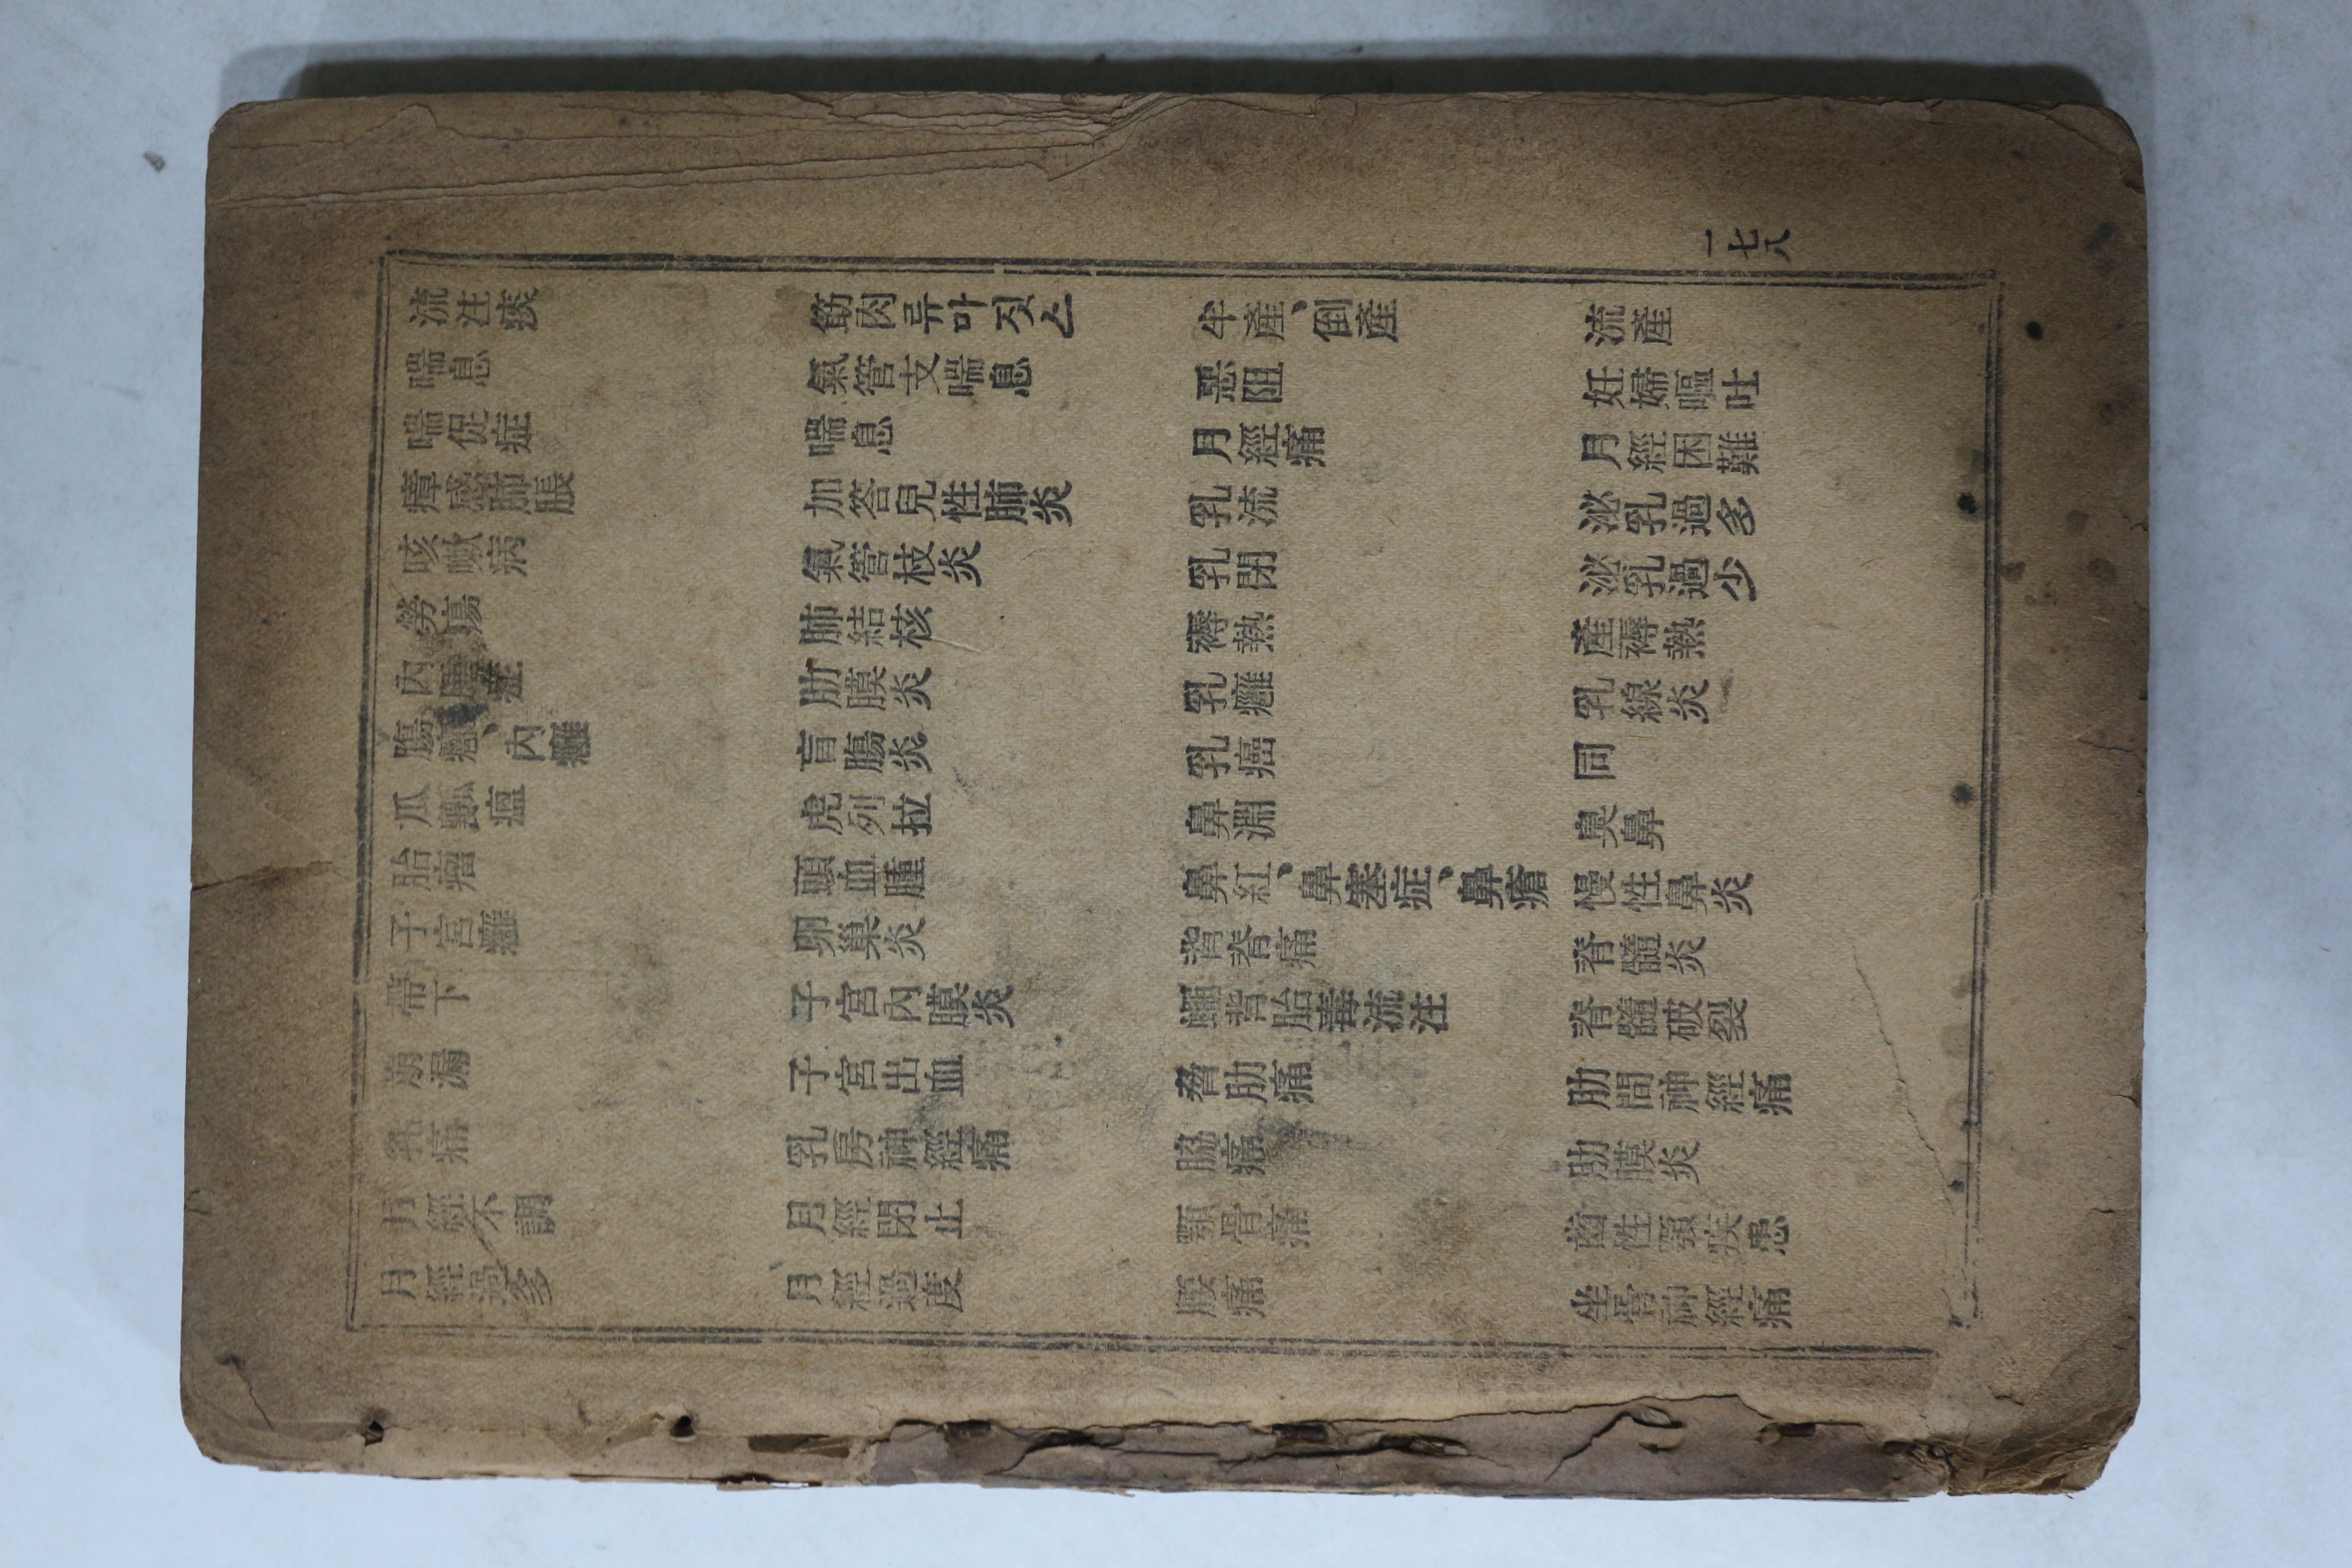 一七八
流注痰 筋肉류마짓스 半產、倒產 流產
喘息 氣管支喘息 惡阻 妊婦嘔吐
喘促症 喘息 月經痛 月經困難
瘴感肺脹 加答兒性肺炎 乳流 泌乳過多
咳嗽病 氣管枝炎 乳閉 泌乳過少
勞瘍 肺結核 褥熱 產褥熱
內 症 肋膜炎 乳癰 乳線炎
腸 、內癰 盲腸炎 乳癌 同
瓜瓤瘟 虎列拉 鼻淵 臭鼻
胎瘤 頭血腫 鼻紅、鼻塞症、鼻瘡 慢性鼻炎
子宮癰 卵巢炎 背脊痛 脊髓炎
帶下 子宮內膜炎 背胎毒流注 脊髓破裂
崩漏 子宮出血 脅肋痛 肋間神經痛
乳痛 乳房神經痛 脇 肋膜炎
月經不調 月經閉止 顎骨痛 齒性顎疾患
月經過多 月經過度 腰痛 坐骨神經痛